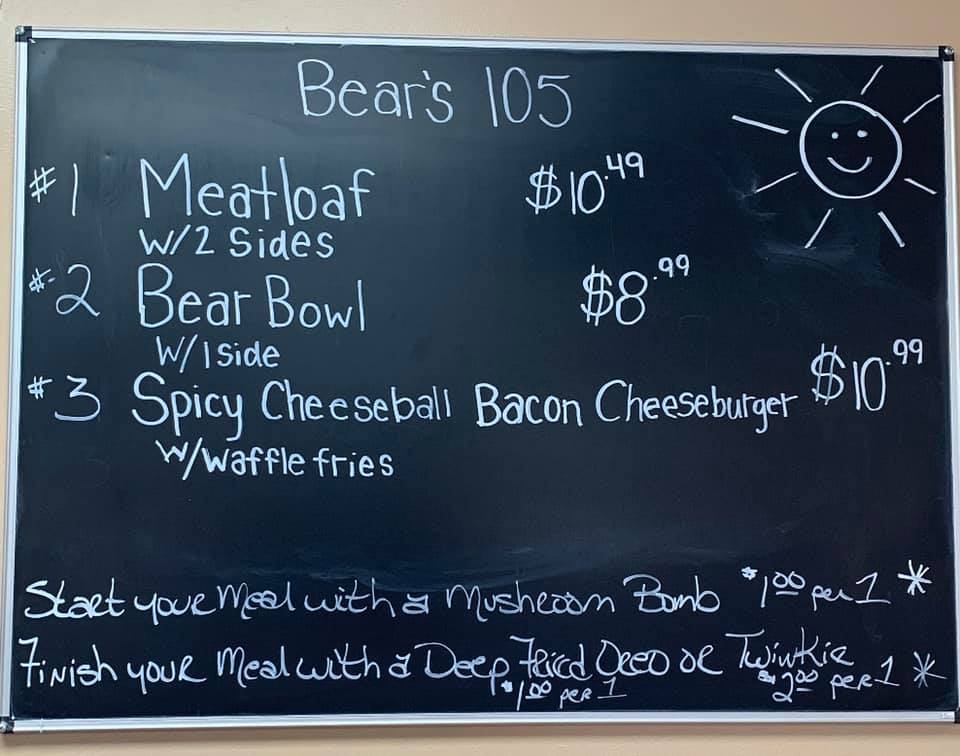 Bear's 105
#1 Meatloaf $10.49
W/2 Sides
#2 Bear Bowl $8.99
W/1 side
#3 Spicy Cheeseball Bacon Cheeseburger $10.99
W/waffle fries
Start your Meal with a Mushroom Bomb $1.00 per 1 *
Finish your Meal with a Deep Fried Oreo or Twinkie *
$1.00 per 1 $2.00 per 1